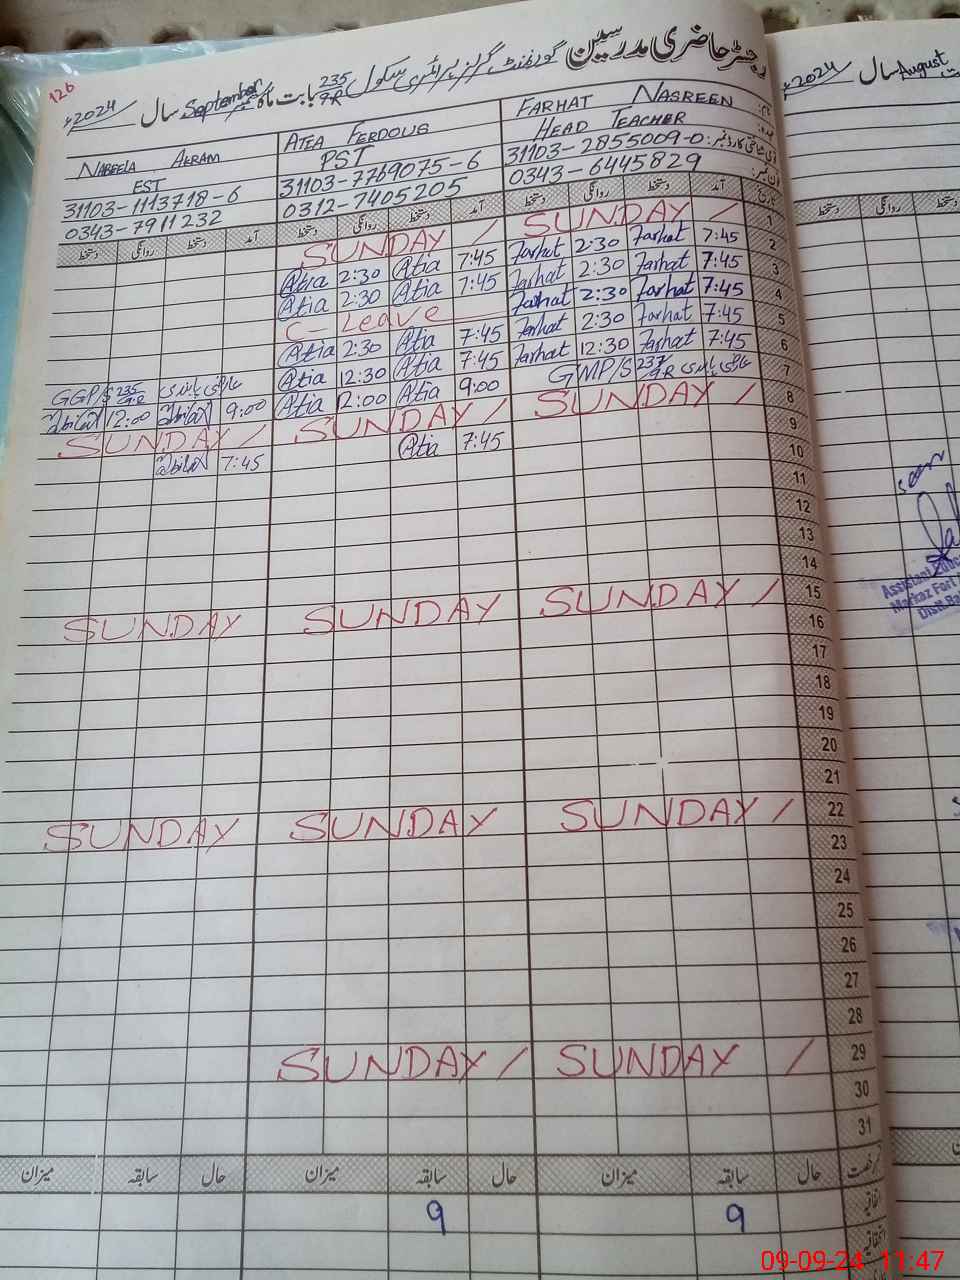 126
رجسٹر حاضری مدرسین گورنمنٹ گرلز پرائمری سکول 235/9R بابت ماہ ستمبر September سال 2024ء
FARHAT NASREEN
HEAD TEACHER
31103-2855009-0
0343-6445829
ATIA FERDOUS
PST
31103-7769075-6
0312-7405205
NABEELA AKRAM
EST
31103-1113718-6
0343-7911232
تاریخ آمد دستخط روانگی دستخط آمد دستخط روانگی دستخط آمد دستخط روانگی دستخط
1 SUNDAY / SUNDAY /
2 7:45 Farhat 2:30 Farhat 7:45 Atia 2:30 Atia
3 7:45 Farhat 2:30 Farhat 7:45 Atia 2:30 Atia
4 7:45 Farhat 2:30 Farhat C-Leave
5 7:45 Farhat 2:30 Farhat 7:45 Atia 2:30 Atia
6 7:45 Farhat 12:30 Farhat 7:45 Atia 12:30 Atia
7 GMP/S 237/9R 9:00 Atia 12:00 Atia GGP/S 235/9R 9:00 12:00
8 SUNDAY / SUNDAY / SUNDAY /
9 7:45 Atia 7:45
10
11
12
13
14
15 SUNDAY / SUNDAY SUNDAY
16
17
18
19
20
21
22 SUNDAY / SUNDAY SUNDAY
23
24
25
26
27
28
29 SUNDAY / SUNDAY /
30
31
حال سابقہ میزان حال سابقہ میزان حال سابقہ میزان
9 9
سال August 2024
seen
09-09-24 11:47